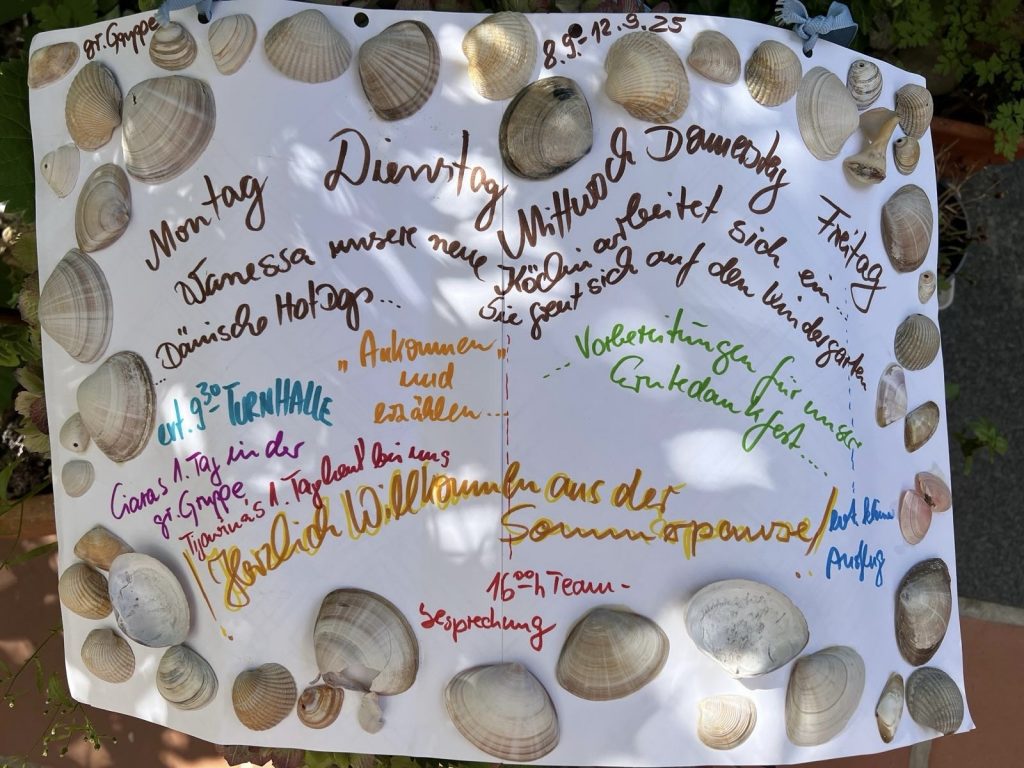 gr. Gruppe
8.9.-12.9.25
Montag Dienstag Mittwoch Donnerstag Freitag
Vanessa unsere neue Köchin arbeitet sich ein...
Dänische HotDgs... Sie freut sich auf den Kindergarten
"Ankommen"
und
erzählen...
Vorbereitungen für unser
Erntedankfest....
evt. 9³⁰ TURNHALLE
Ciaras 1. Tag in der
gr. Gruppe
1. Tag heut bei uns
Herzlich Willkommen aus der
Sommerpause!
evt.
Ausflug
16⁰⁰h Team-
besprechung